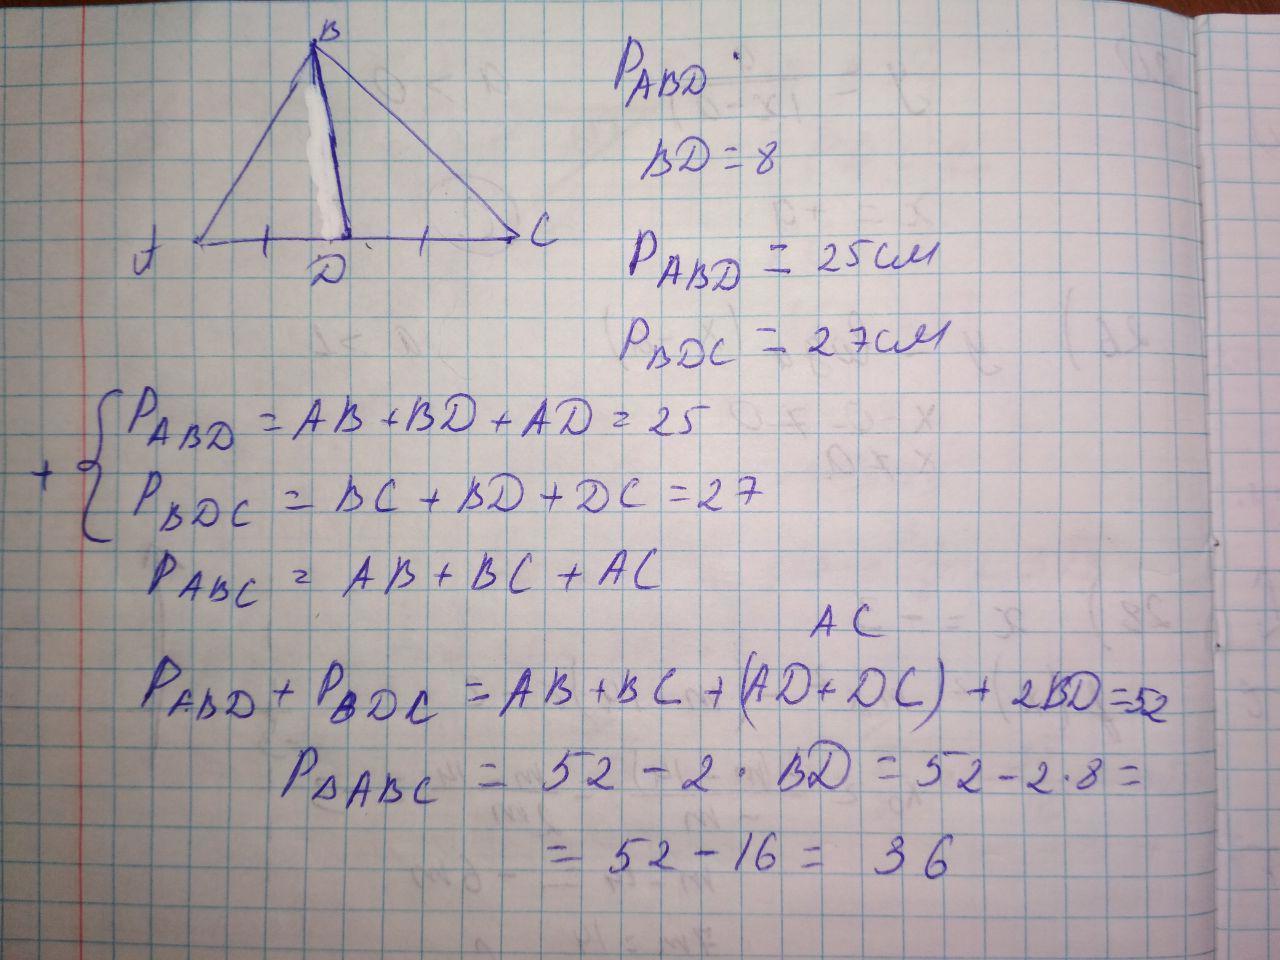 B
A D C
P ABD
BD = 8
P ABD = 25 см
P BDC = 27 см
+ { P ABD = AB + BD + AD = 25
P BDC = BC + BD + DC = 27
P ABC = AB + BC + AC
AC
P ABD + P BDC = AB + BC + (AD + DC) + 2BD = 52
P ΔABC = 52 - 2 · BD = 52 - 2 · 8 =
= 52 - 16 = 36